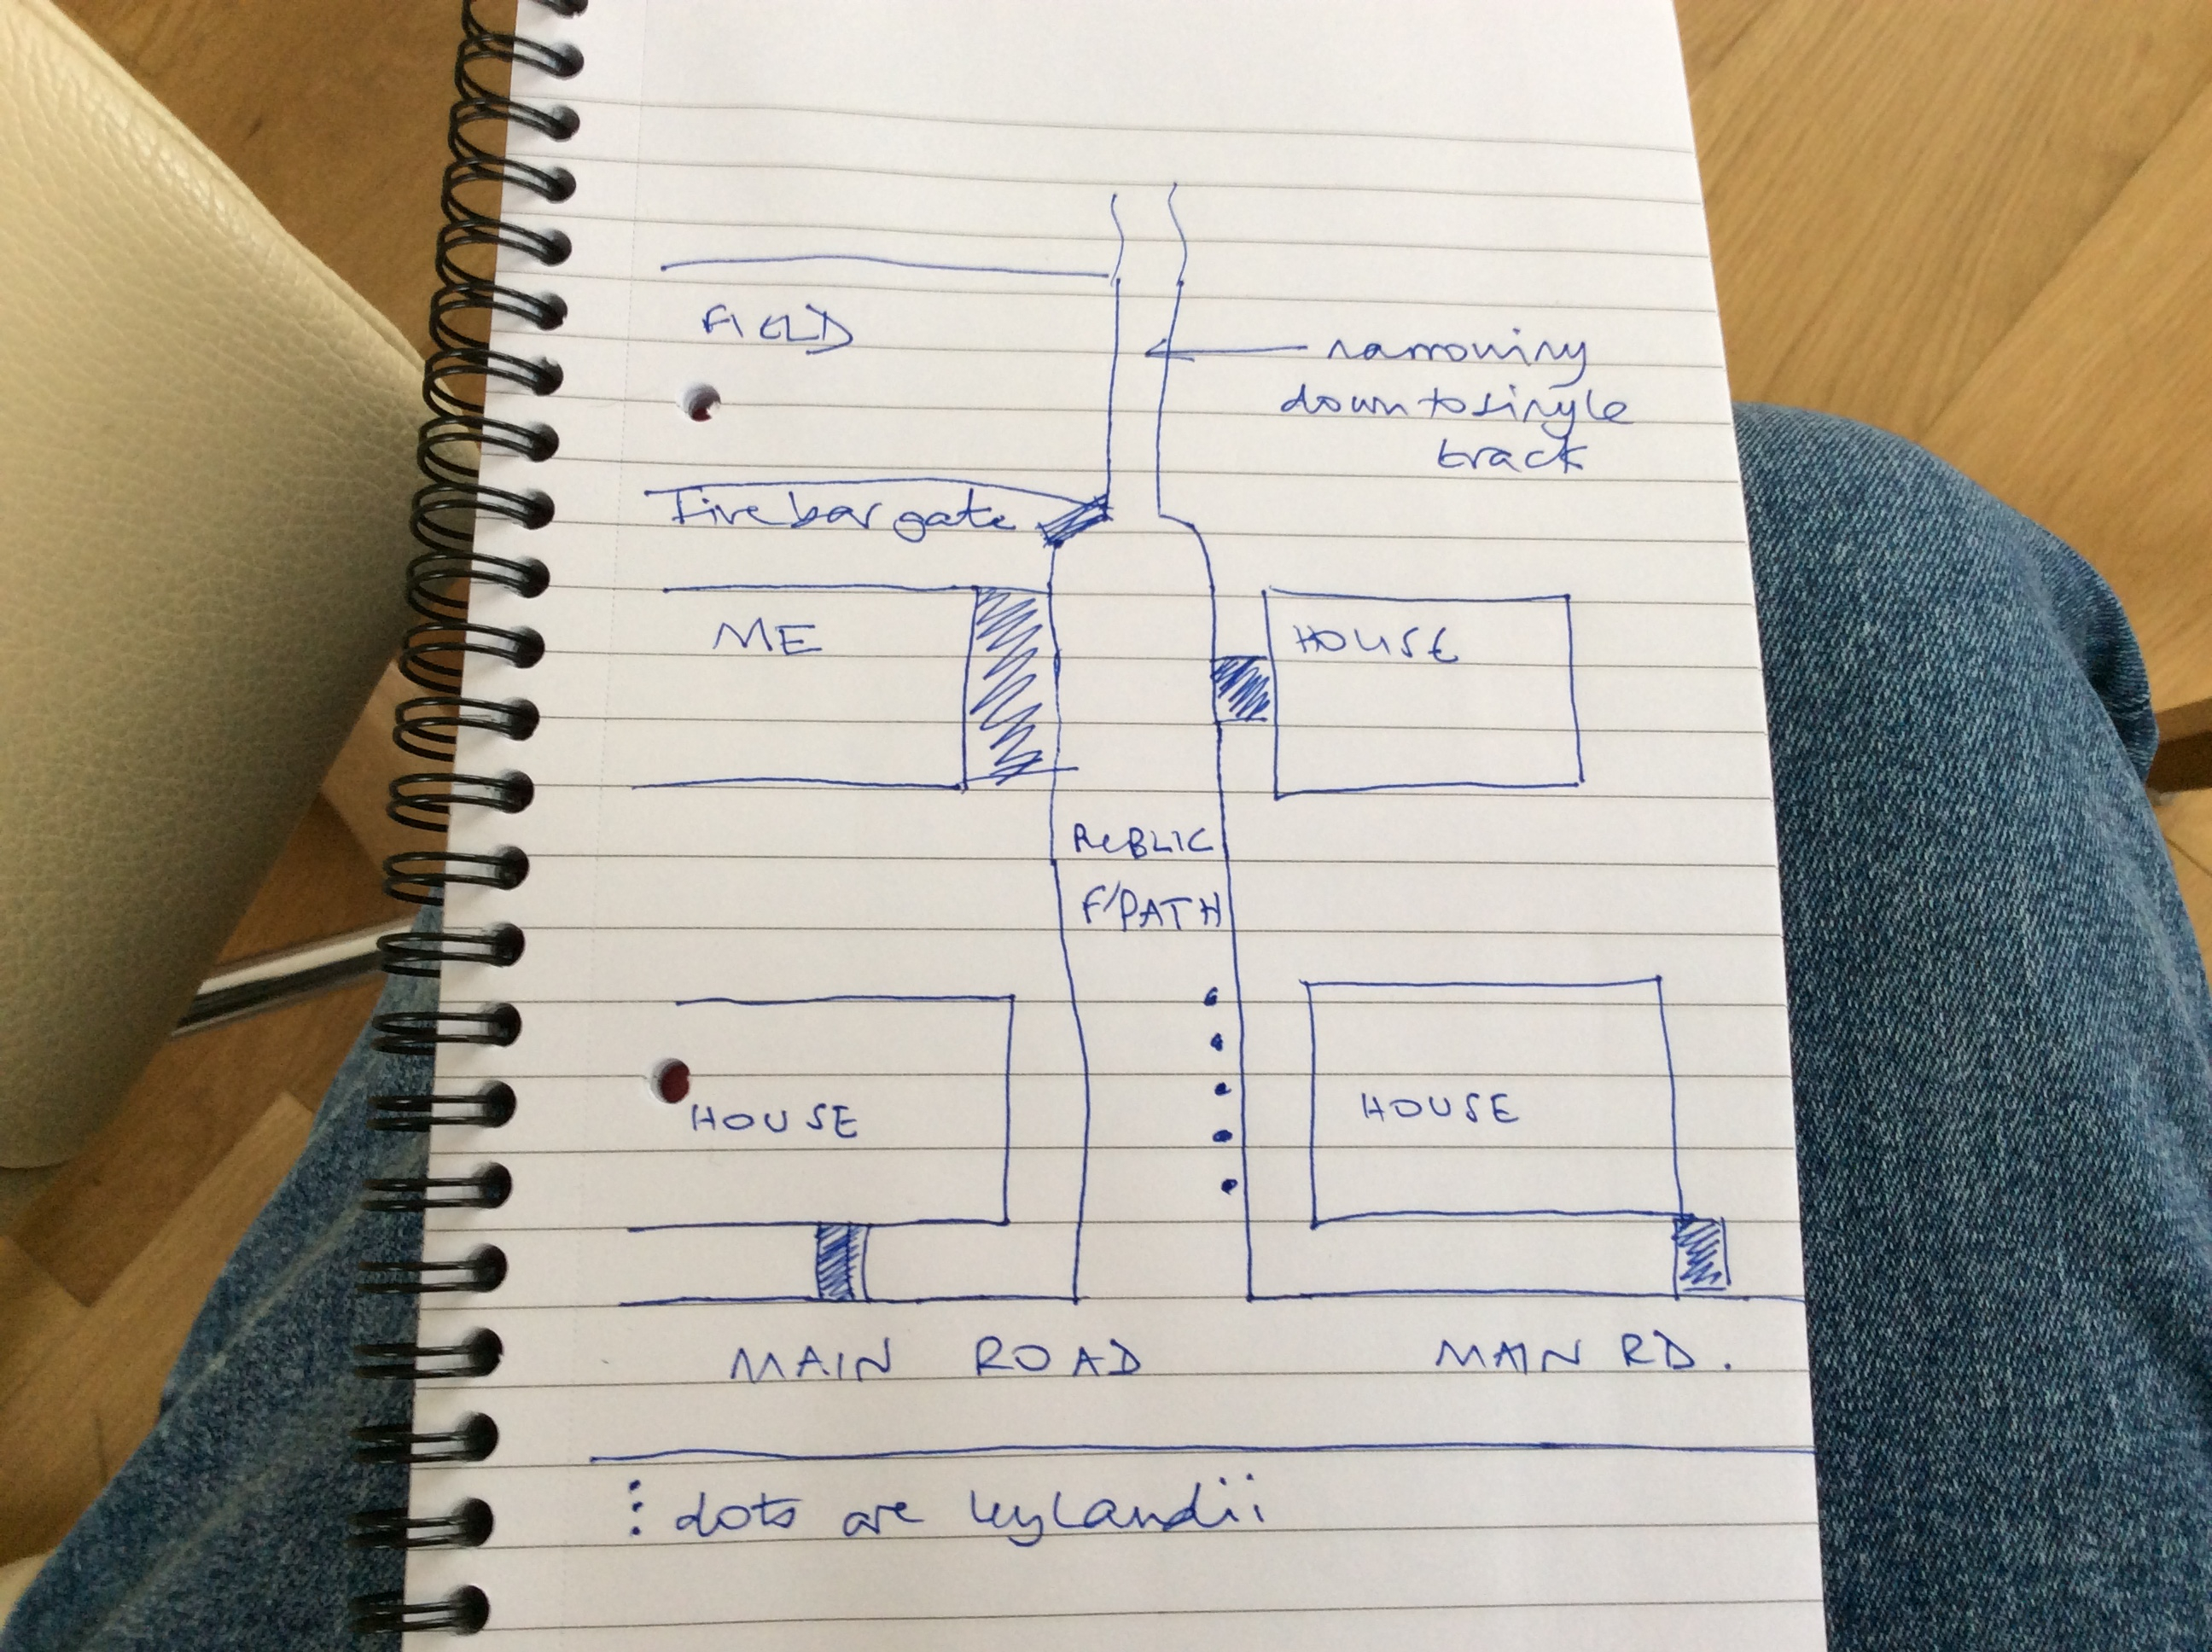 FIELD
narrowing
down to single
track
Five bar gate
ME
HOUSE
PUBLIC
F/PATH
HOUSE
HOUSE
MAIN ROAD
MAIN RD.
: dots are leylandii